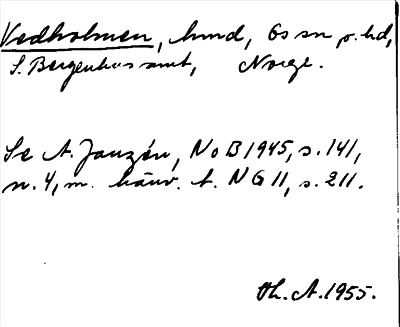 Vedholmen, hmd, Os sn o. hd,
S. Bergenhus amt, Norge.
Se A. Janzén, NoB 1945, s. 141,
n. 4, m. hänv. t. NG 11, s. 211.
Th. A. 1955.